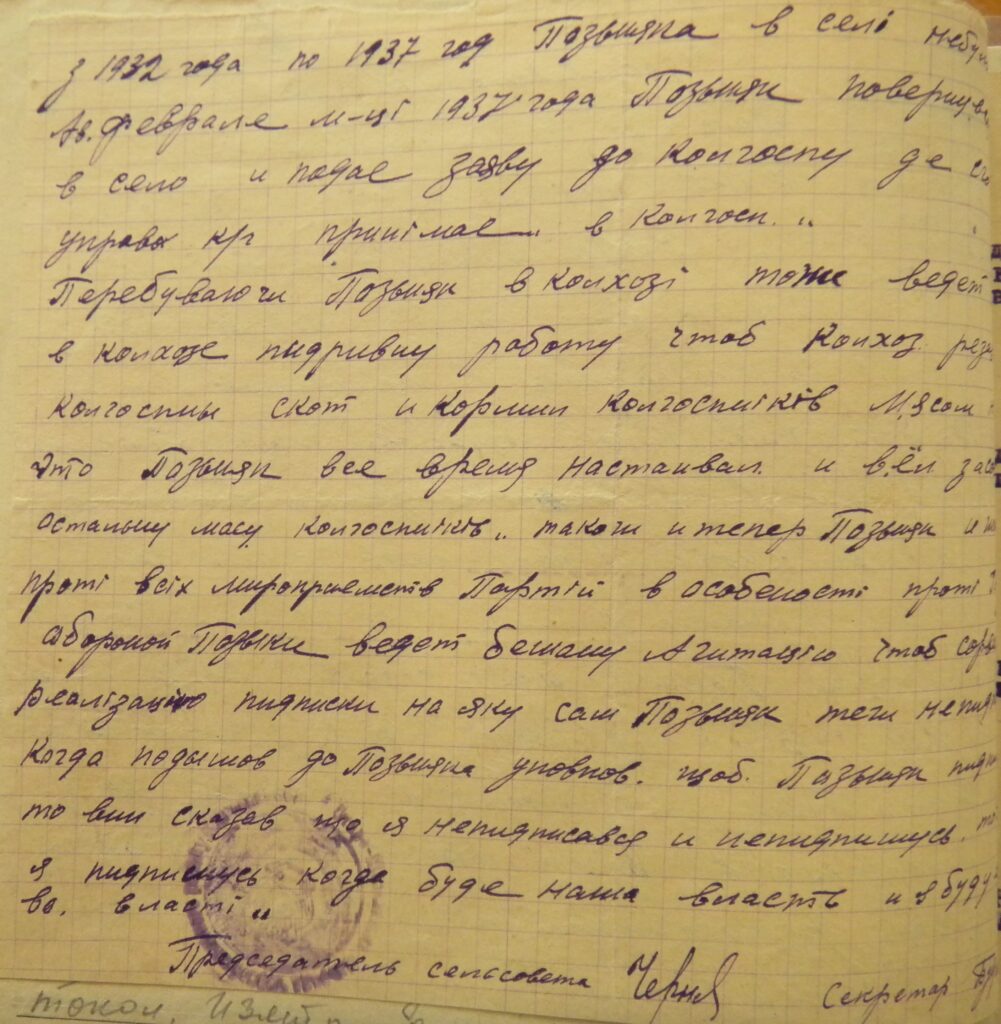 з 1932 года по 1937 год Позьняка в селі небул
Ав. феврале м-ці 1937 года Позьняк повернувс
в село и подае заяву до колгоспу де єго
управа к/г принімае „ в колгосп. „
Перебуваючи Позьняк в колхозі тоже ведет
в колхозе пидривну работу чтоб колхоз реза
колгоспны скот и кормил колгоспніків мясом
это Позьняк все время настаивал и вёл за со
остальну масу колгоспніків „ такочи и тепер Позьняк и
проті всіх мироприемств Партій в особености проті
обороной Позыки ведет бешану Агитацію чтоб сорва
реалізацію пидписки на яку сам Позьняк теж непид
Когда подышов до Позьняка уповнов. щоб. Позьняк пидп
то вин сказав що я непидписався и непидпишусь.
я пидпишусь когда буде наша власть и я буду
во. власті „
Председатель сельсовета Черня Секретар
токол.